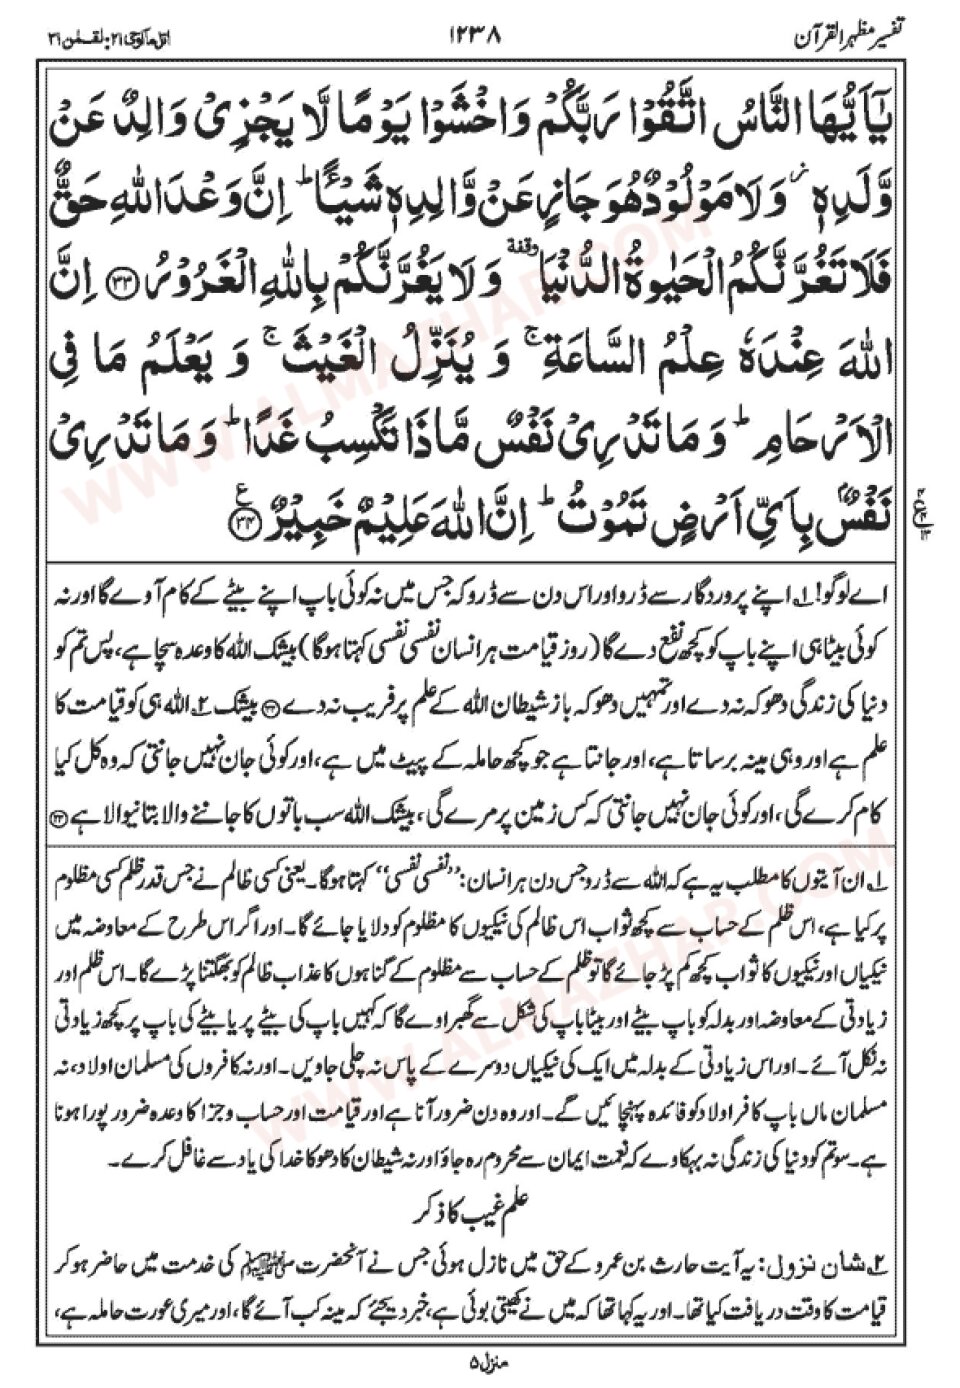 تفسیر مظہر القرآن ۱۲۳۸ اتل ما اوحی ۲۱: لقمٰن ۳۱
يٰۤاَيُّهَا النَّاسُ اتَّقُوْا رَبَّكُمْ وَاخْشَوْا يَوْمًا لَّا يَجْزِىْ وَالِدٌ عَنْ
وَّلَدِهٖ ز وَلَا مَوْلُوْدٌ هُوَ جَازٍ عَنْ وَّالِدِهٖ شَيْـًٔا ط اِنَّ وَعْدَ اللّٰهِ حَقٌّ
فَلَا تَغُرَّنَّكُمُ الْحَيٰوةُ الدُّنْيَا وقفة وَلَا يَغُرَّنَّكُمْ بِاللّٰهِ الْغَرُوْرُ ۝۳۳ اِنَّ
اللّٰهَ عِنْدَهٗ عِلْمُ السَّاعَةِ ج وَ يُنَزِّلُ الْغَيْثَ ج وَ يَعْلَمُ مَا فِى
الْاَرْحَامِ ط وَ مَا تَدْرِىْ نَفْسٌ مَّاذَا تَكْسِبُ غَدًا ط وَ مَا تَدْرِىْ
نَفْسٌۢ بِاَىِّ اَرْضٍ تَمُوْتُ ط اِنَّ اللّٰهَ عَلِيْمٌ خَبِيْرٌ ۝۳۴ ع
اے لوگو! ۱؎ اپنے پروردگار سے ڈرو اور اس دن سے ڈرو کہ جس میں نہ کوئی باپ اپنے بیٹے کے کام آوے گا اور نہ
کوئی بیٹا ہی اپنے باپ کو کچھ نفع دے گا (روز قیامت ہر انسان نفسی نفسی کہتا ہوگا) بیشک اللہ کا وعدہ سچا ہے، پس تم کو
دنیا کی زندگی دھوکہ نہ دے اور تمہیں دھوکہ باز شیطان اللہ کے علم پر فریب نہ دے ۝۳۳ بیشک ۲؎ اللہ ہی کو قیامت کا
علم ہے اور وہی مینہ برساتا ہے، اور جانتا ہے جو کچھ حاملہ کے پیٹ میں ہے، اور کوئی جان نہیں جانتی کہ وہ کل کیا
کام کرے گی، اور کوئی جان نہیں جانتی کہ کس زمین پر مرے گی، بیشک اللہ سب باتوں کا جاننے والا بتانیوالا ہے ۝۳۴
۱؎ ان آیتوں کا مطلب یہ ہے کہ اللہ سے ڈرو جس دن ہر انسان: ”نفسی نفسی“ کہتا ہوگا۔ یعنی کسی ظالم نے جس قدر ظلم کسی مظلوم
پر کیا ہے، اس ظلم کے حساب سے کچھ ثواب اس ظالم کی نیکیوں کا مظلوم کو دلایا جائے گا۔ اور اگر اس طرح کے معاوضہ میں
نیکیاں اور نیکیوں کا ثواب کچھ کم پڑ جائے گا تو ظلم کے حساب سے مظلوم کے گناہوں کا عذاب ظالم کو بھگتنا پڑے گا۔ اس ظلم اور
زیادتی کے معاوضہ اور بدلہ کو باپ بیٹے اور بیٹا باپ کی شکل سے گھبراوے گا کہ کہیں باپ کی بیٹے پر یا بیٹے کی باپ پر کچھ زیادتی
نہ نکل آئے۔ اور اس زیادتی کے بدلہ میں ایک کی نیکیاں دوسرے کے پاس نہ چلی جاویں۔ اور نہ کافروں کی مسلمان اولاد، نہ
مسلمان ماں باپ کافر اولاد کو فائدہ پہنچائیں گے۔ اور وہ دن ضرور آنا ہے اور قیامت اور حساب و جزا کا وعدہ ضرور پورا ہونا
ہے۔ سو تم کو دنیا کی زندگی نہ بہکاوے کہ نعمت ایمان سے محروم رہ جاؤ اور نہ شیطان کا دھوکا خدا کی یاد سے غافل کرے۔
علم غیب کا ذکر
۲؎ شان نزول: یہ آیت حارث بن عمرو کے حق میں نازل ہوئی جس نے آنحضرت ﷺ کی خدمت میں حاضر ہو کر
قیامت کا وقت دریافت کیا تھا۔ اور یہ کہا تھا کہ میں نے کھیتی بوئی ہے، خبر دیجئے کہ مینہ کب آئے گا، اور میری عورت حاملہ ہے،
منزل ۵
WWW.ALMAZHAR.COM
WWW.ALMAZHAR.COM